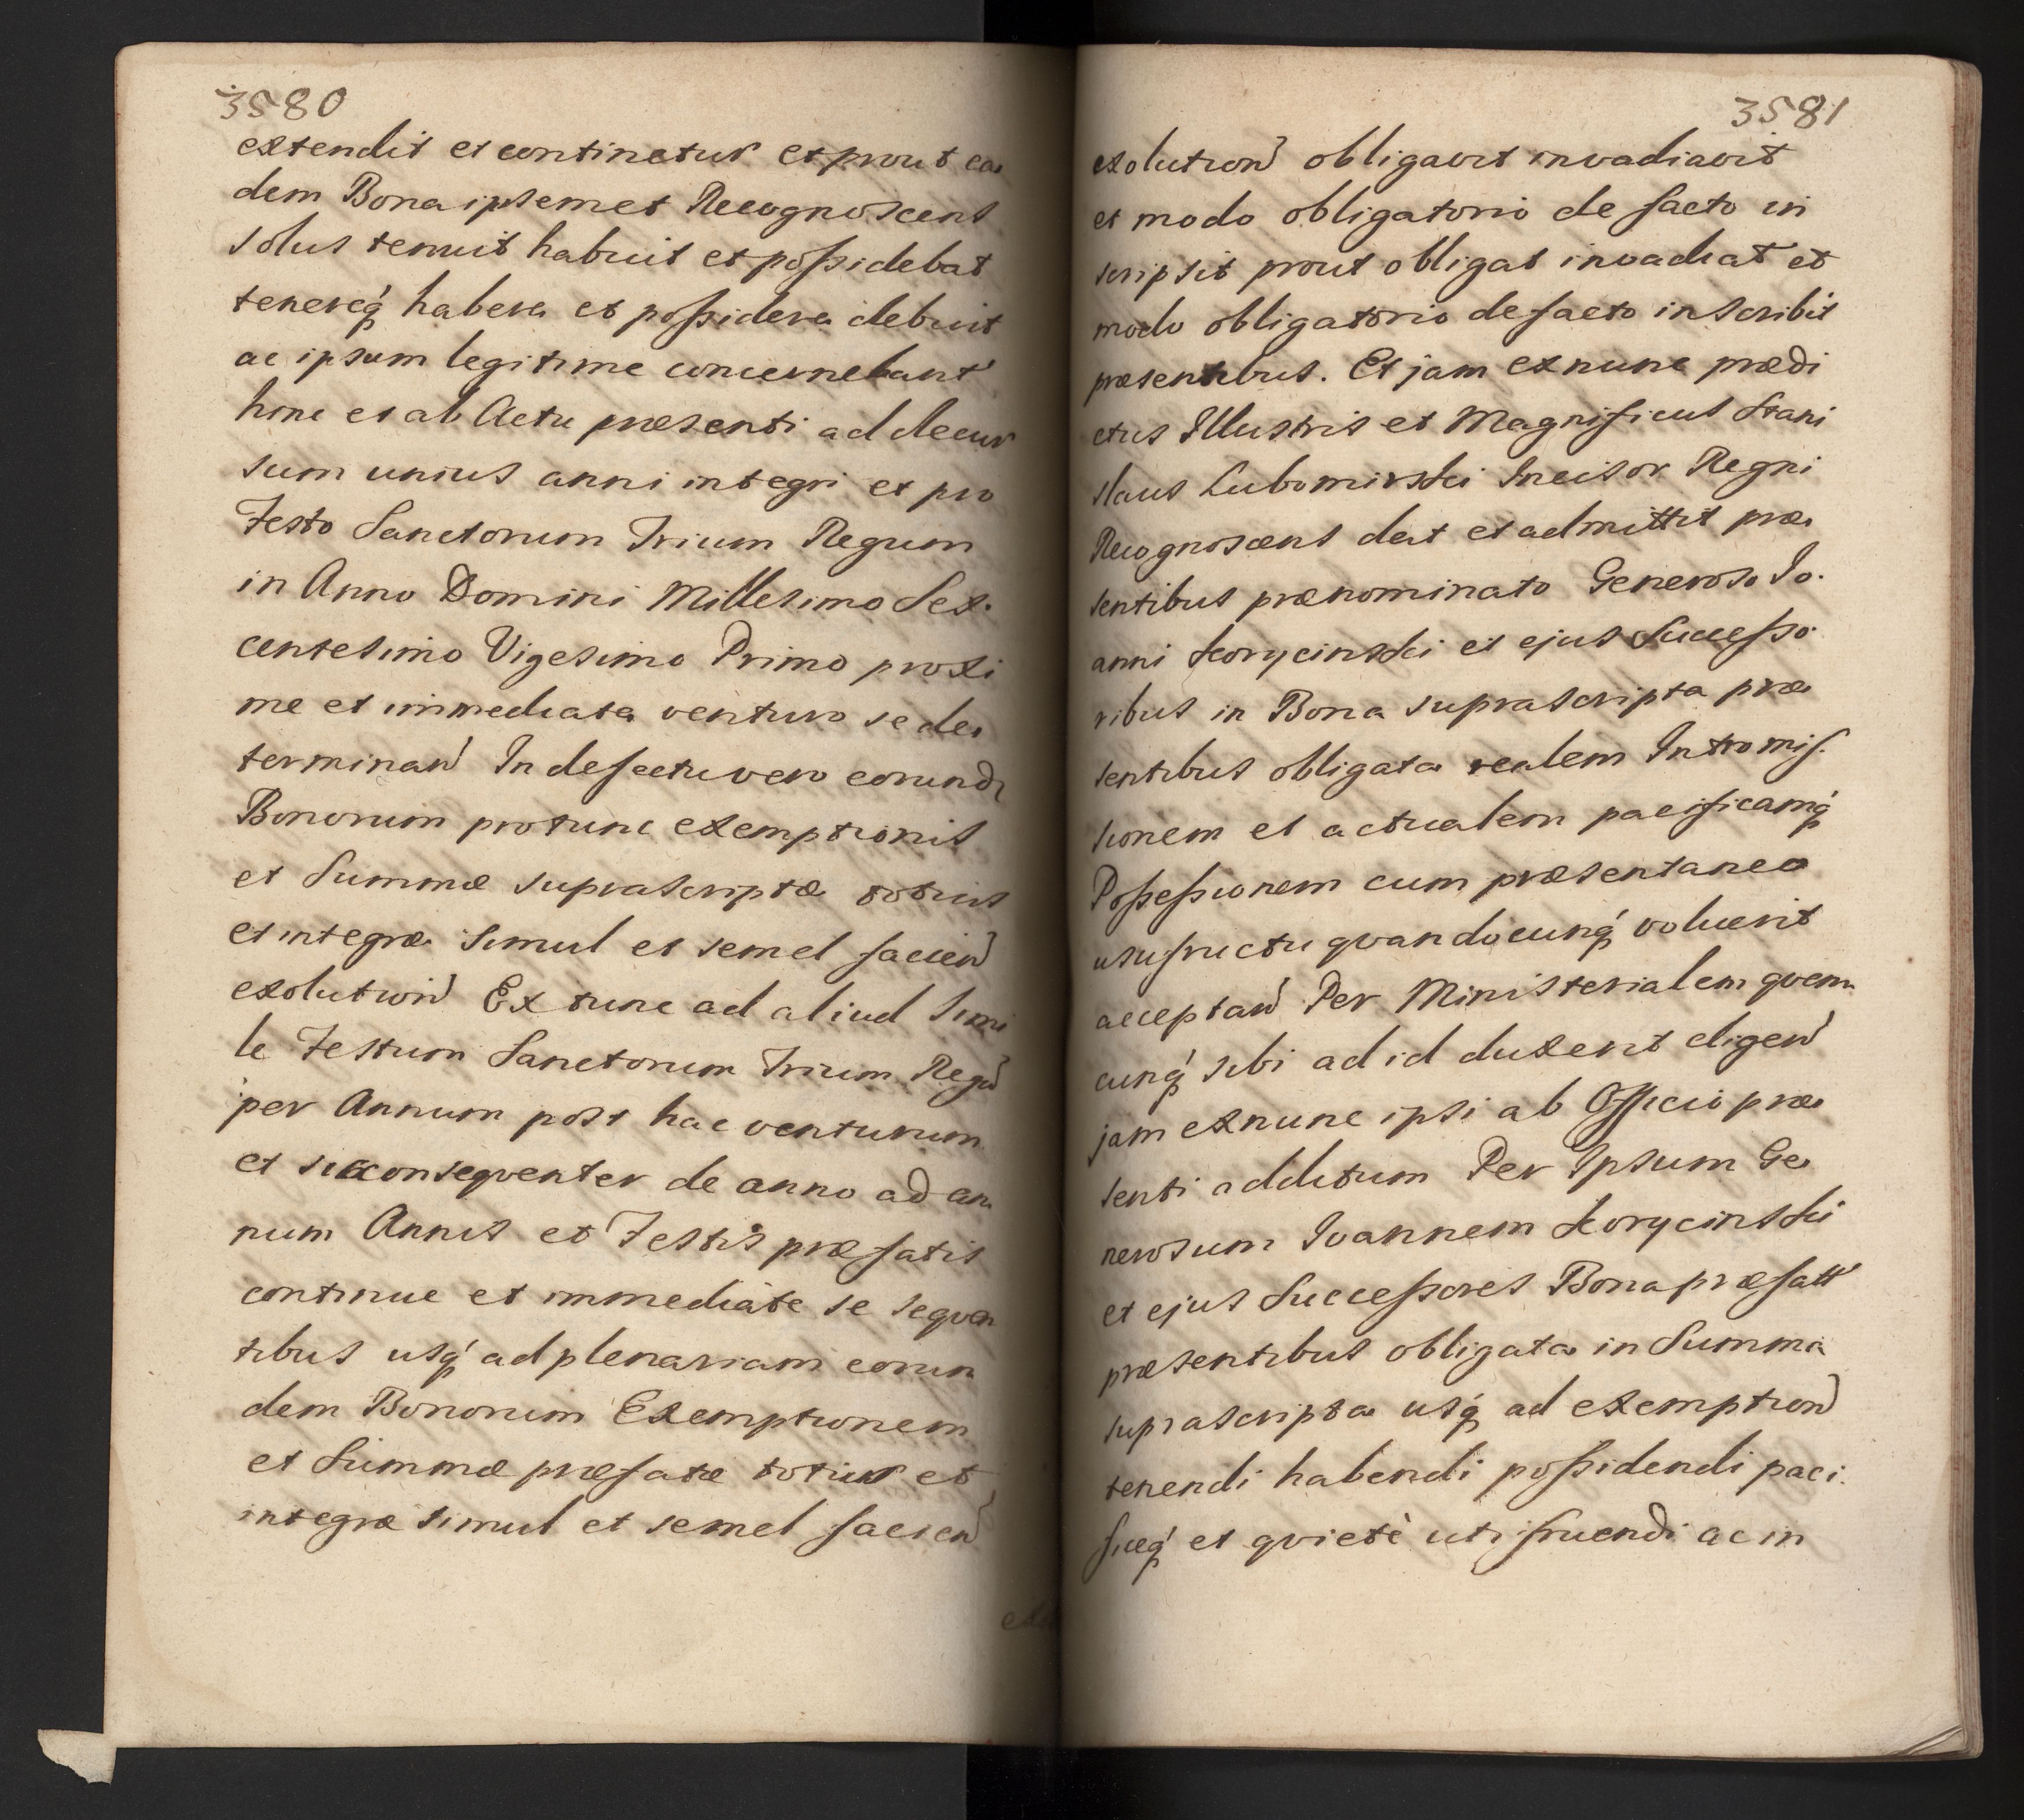 3580
extendit et continetur et prout ea
dem Bona ipsemet Recognoscens
solus tenuit habuit et possidebat
tenereq́ habere et possidere debuit
ac ipsum legitime concernebant
hinc et ab Actu præsenti ad decur
sum unius anni integri et pro
Festo Sanctorum Trium Regum
in Anno Domini Millesimo Sex.
centesimo Vigesimo Primo proxi
me et immediate venturo se de
terminań In defectu vero eorund
Bonorum protunc exemptionis
et Summæ suprascriptæ totius
et integræ simul et semel facień
exolutioń Ex tunc ad aliud simi
le Festum Sanctorum Trium Regú
per Annum post hac venturum
et sic consequenter de anno ad an
num Annis et Festis præfatis
continue et immediate se seqven
tibus usq́ ad plenariam eorun
dem Bonorum Exemptionem
et Summæ præfatæ totius et
integræ simul et semel facień
3581
exolutioń obligavit invadiavit
et modo obligatorio de facto in
scripsit prout obligat invadiat et
modo obligatorio de facto inscribit
præsentibus. Et jam exnunc prædi
ctus Illustris et Magnificus Stani
slaus Lubomirski Incisor Regni
Recognoscens dat et admittit præ
sentibus prænominato Generoso Jo.
anni Korycinski et ejus Successo
ribus in Bona suprascripta præ
sentibus obligata realem Intromis.
sionem et actualem pacificamq́
Possessionem cum præsentaneo
usufructu qvandocunq́ voluerit
acceptań Per Ministerialem qvem
cunq́ sibi ad id duxerit eligeń
jam exnunc ipsi ab Officio præ
senti additum Per Ipsum Ge
nerosum Joannem Korycinski
et ejus Successores Bona præfatt
præsentibus obligata in Summa
suprascripta usq́ ad exemptioń
tenendi habendi possidendi paci.
ficeq́ et qvietè utifruendi ac in